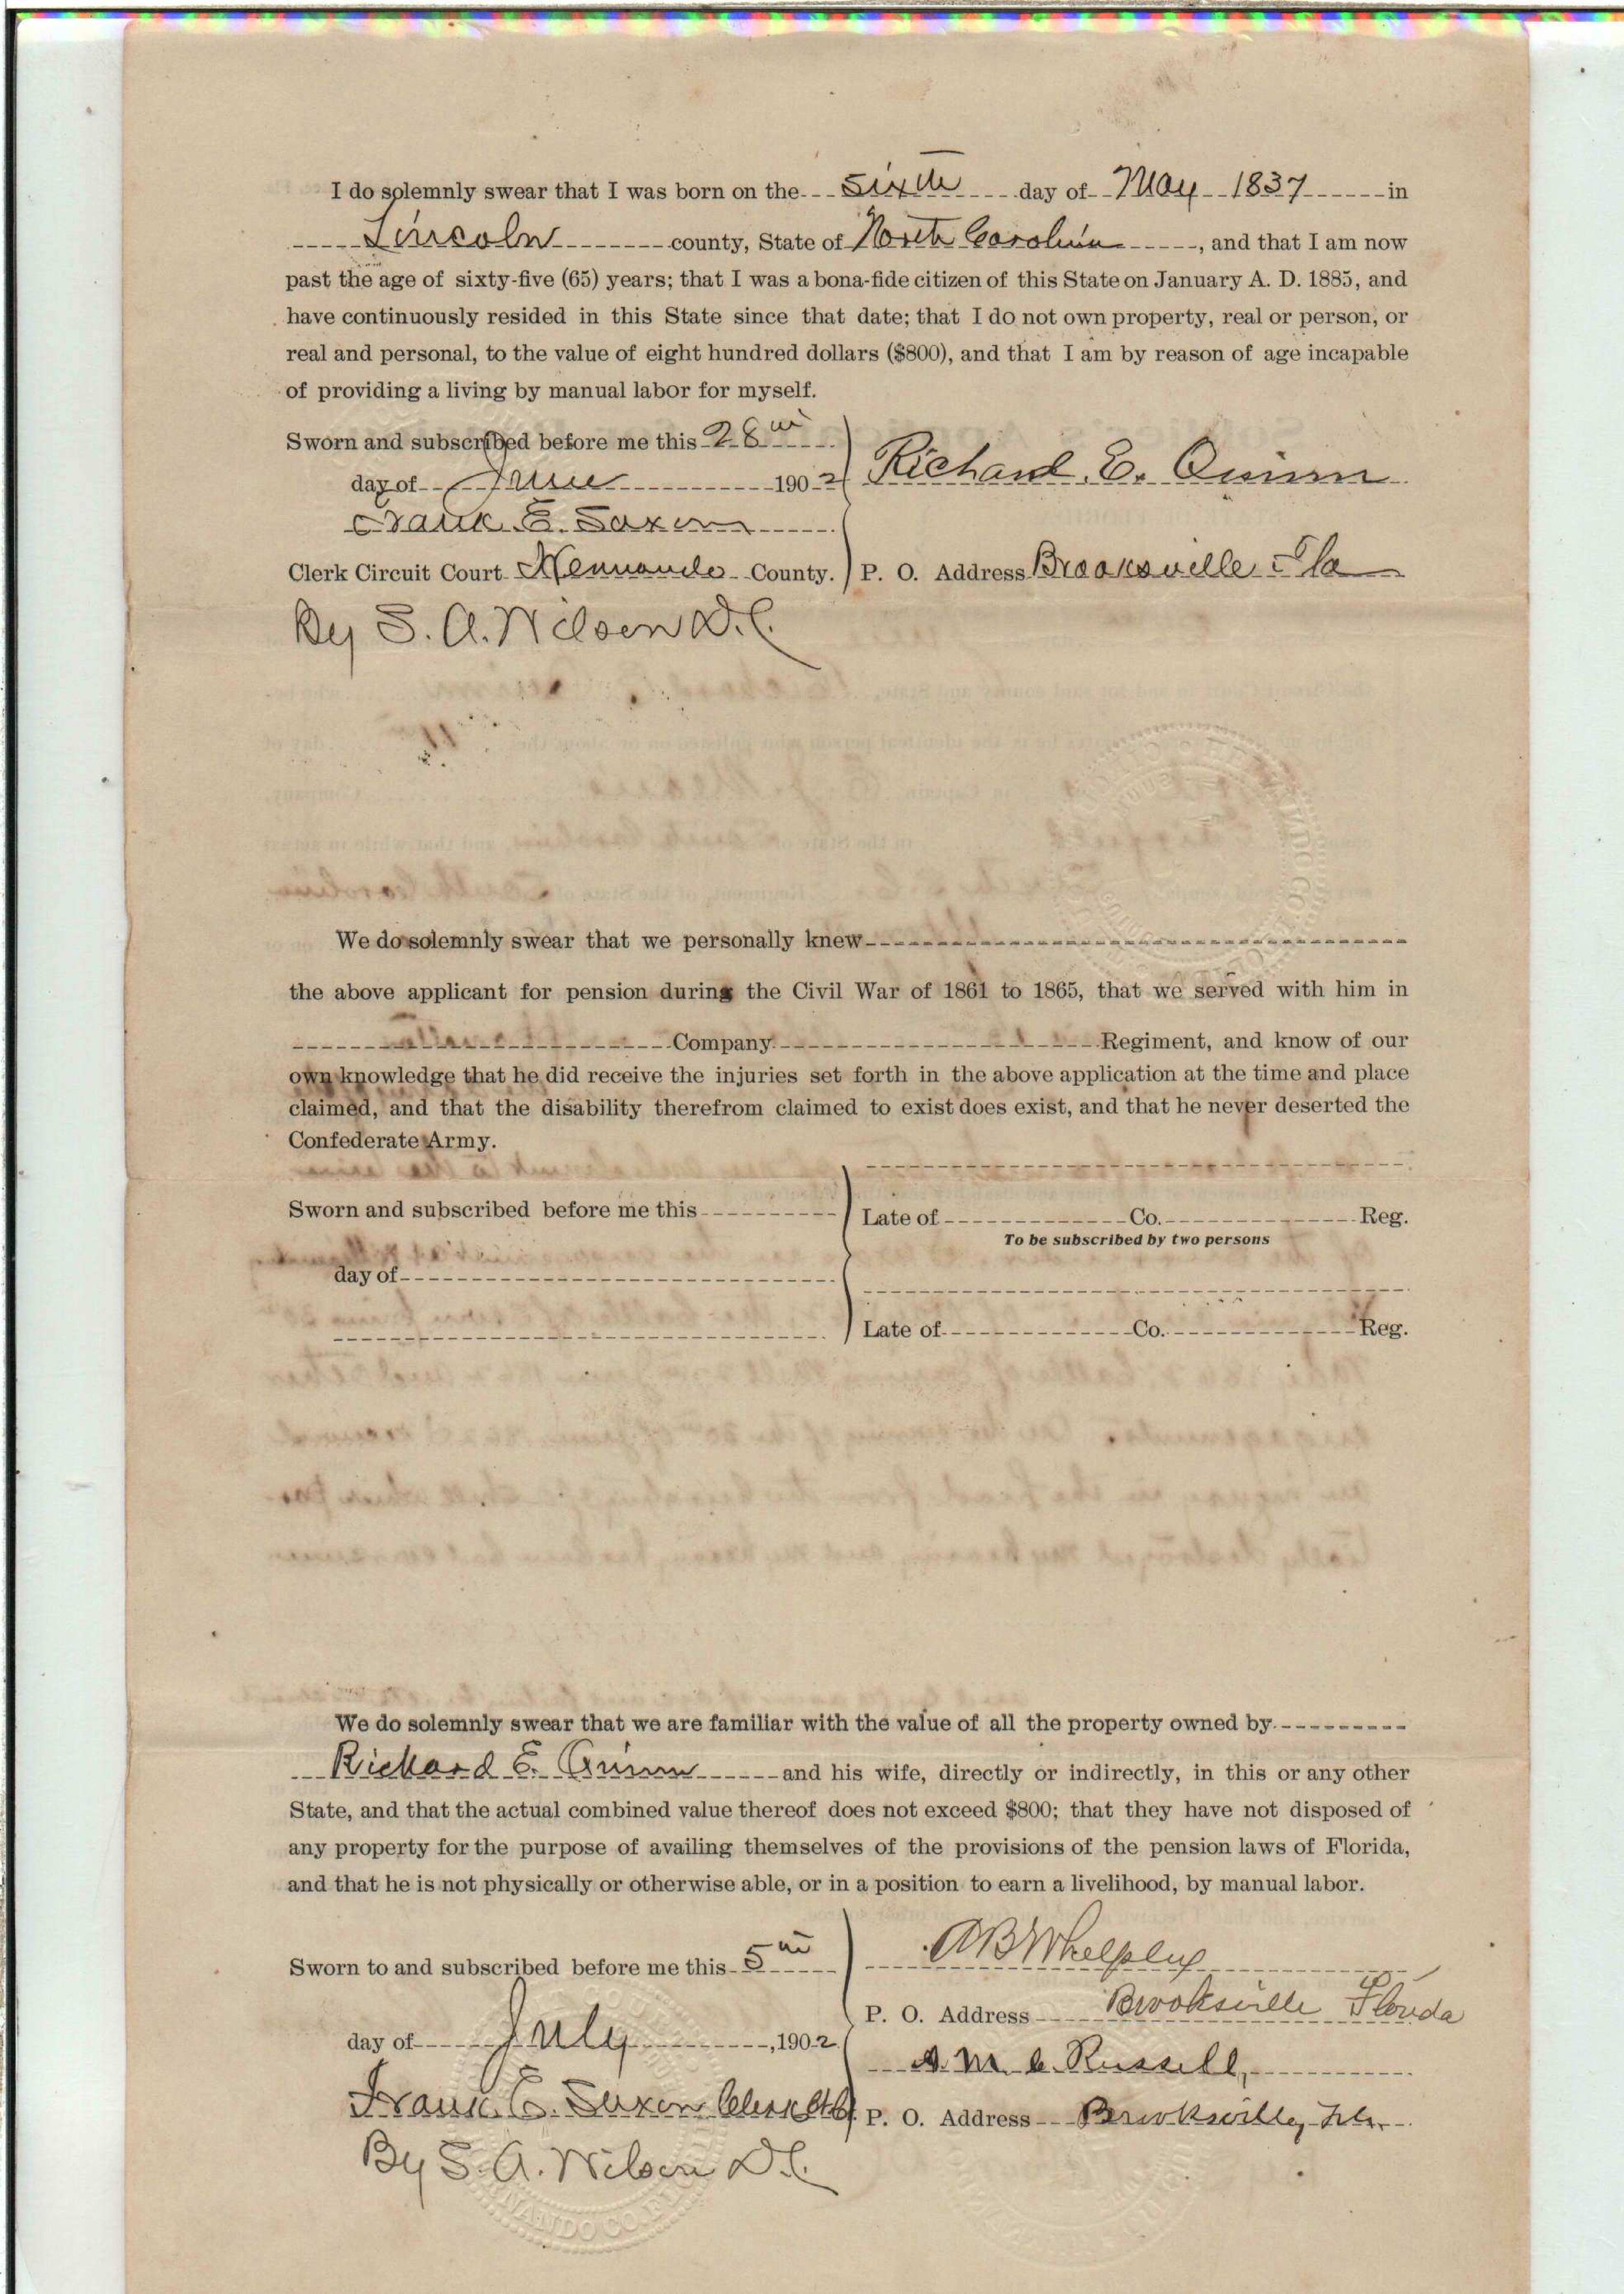 I do solemnly swear that I was born on the sixth day of May 1837 in
Lincoln county, State of North Carolina, and that I am now
past the age of sixty-five (65) years; that I was a bona-fide citizen of this State on January A. D. 1885, and
have continuously resided in this State since that date; that I do not own property, real or person, or
real and personal, to the value of eight hundred dollars ($800), and that I am by reason of age incapable
of providing a living by manual labor for myself.
Sworn and subscribed before me this 28th
day of June 1902
Richard. E. Quinn
Frank E. Saxon
Clerk Circuit Court Hernando County.
P. O. Address Brooksville Fla
By S. A. Wilson D.C.
We do solemnly swear that we personally knew
the above applicant for pension during the Civil War of 1861 to 1865, that we served with him in
Company Regiment, and know of our
own knowledge that he did receive the injuries set forth in the above application at the time and place
claimed, and that the disability therefrom claimed to exist does exist, and that he never deserted the
Confederate Army.
Sworn and subscribed before me this
Late of Co. Reg.
To be subscribed by two persons
day of
Late of Co. Reg.
We do solemnly swear that we are familiar with the value of all the property owned by
Richard E. Quinn and his wife, directly or indirectly, in this or any other
State, and that the actual combined value thereof does not exceed $800; that they have not disposed of
any property for the purpose of availing themselves of the provisions of the pension laws of Florida,
and that he is not physically or otherwise able, or in a position to earn a livelihood, by manual labor.
Sworn to and subscribed before me this 5th
AB Whelpley
P. O. Address Brooksville Florida
day of July, 1902
A. M. C. Russell,
Frank E. Saxon Clerk
P. O. Address Brooksville, Fla.
By S. A. Wilson D.C.